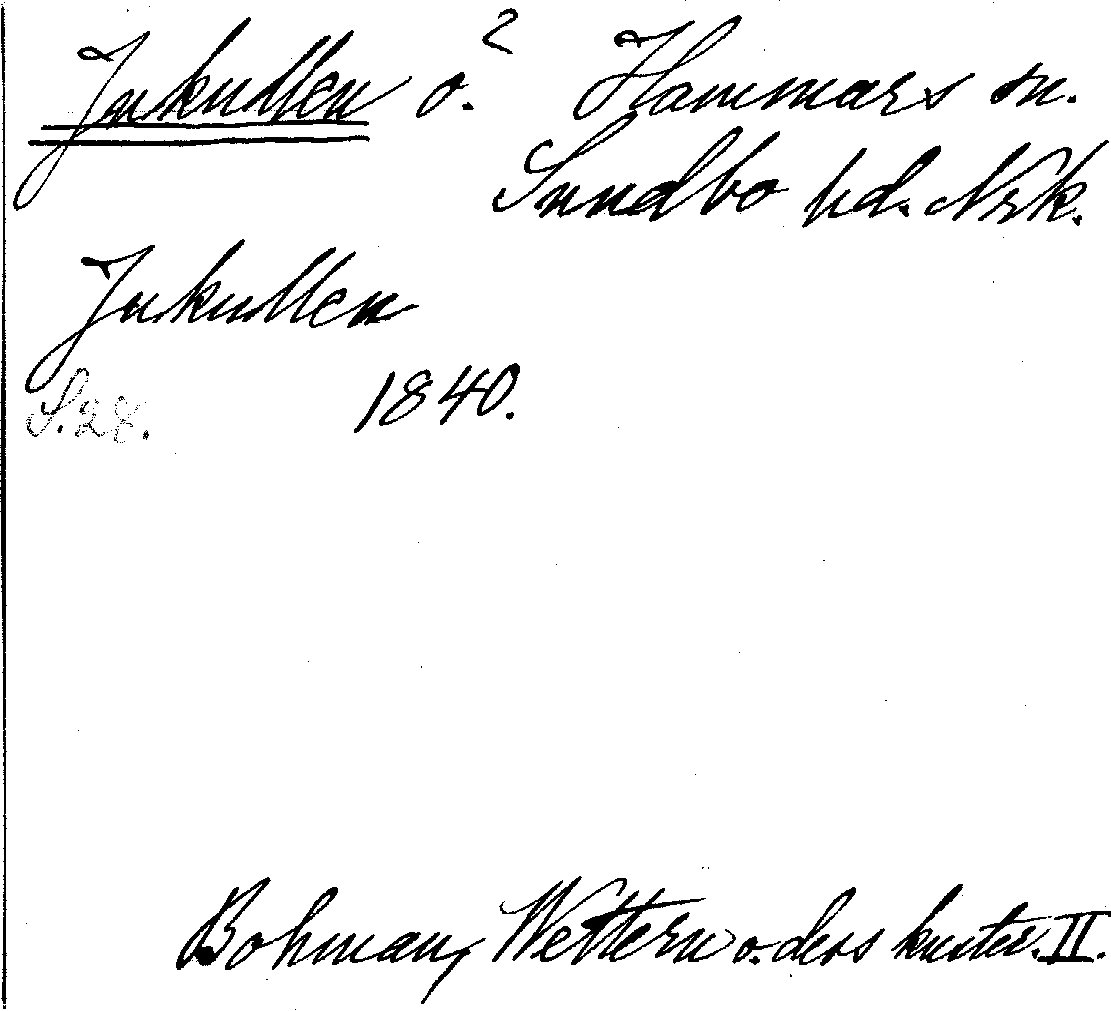 Jukullen ö.² Hammars sn.
Sundbo hd. Nrk.
Jukullen
S. 28. 1840.
Bohman, Wettern o. dess kuster. II.